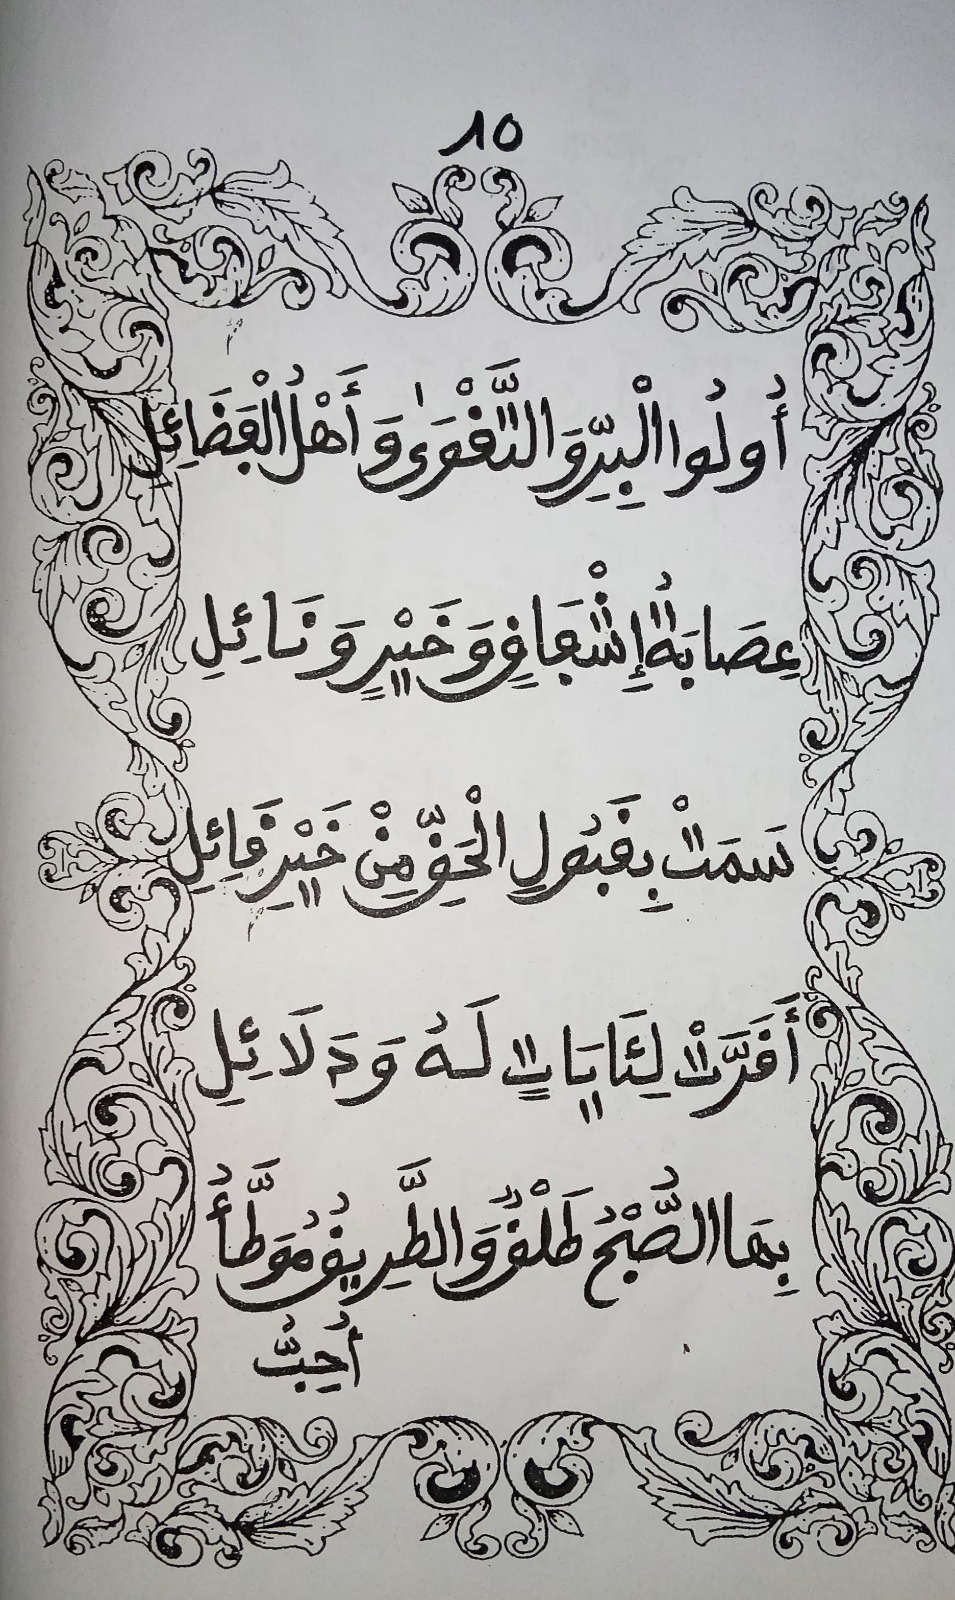 ٨٥
أُولُوا الْبِرِّ وَالتَّقْوَىٰ وَأَهْلُ الْفَضَائِلِ
عِصَابَةُ إِتْحَافٍ وَخَيْرٍ وَنَائِلِ
سَمَتْ بِقَبُولِ الْحَقِّ مِنْ خَيْرِ قَائِلِ
أَقَرَّتْ لِئَايَاتٍ لَهُ وَدَلَائِلِ
بِهَا الصُّبْحُ طَلْقٌ وَالطَّرِيقُ مُوَطَّأُ
أُحِبُّ